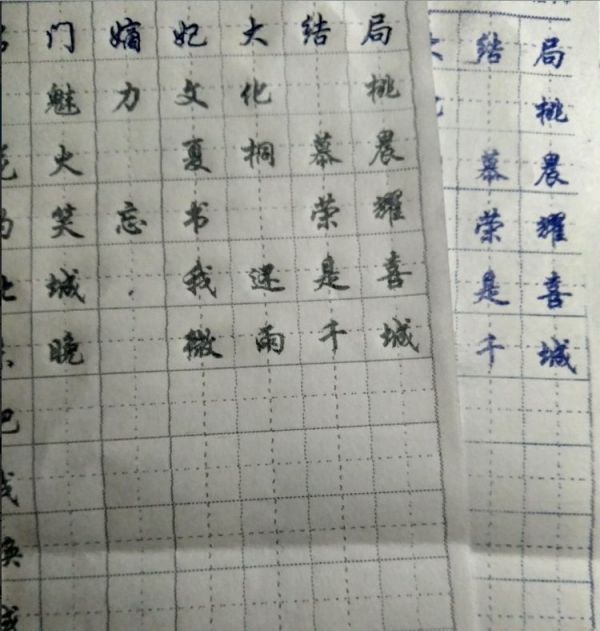 门嫡妃大结局
魅力文化 桃
史 夏桐慕晨
笑忘书 荣耀
城. 我还是喜
晚 微雨千城
结局
桃
慕晨
荣耀
是喜
千城